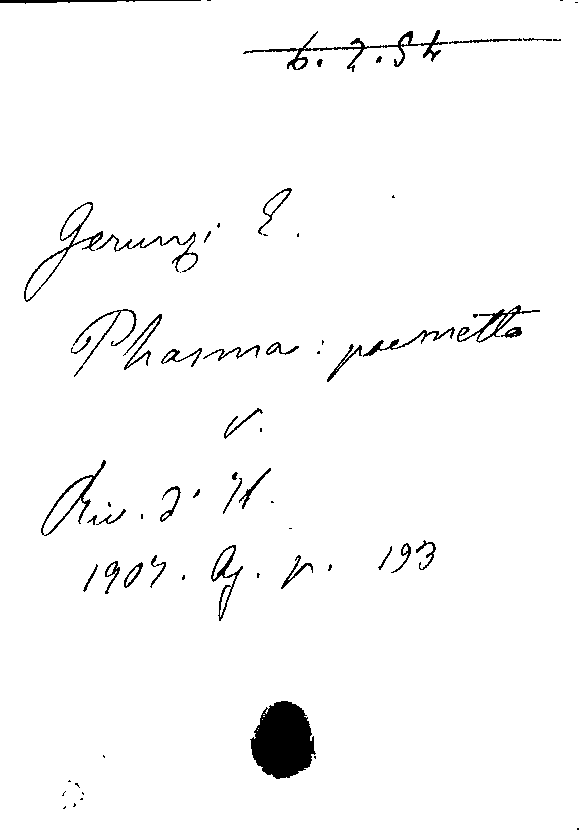 6.2.54
Gerunzi E.
Phasma: poemetto
v.
Riv. d' It.
1907. Ag. p. 193